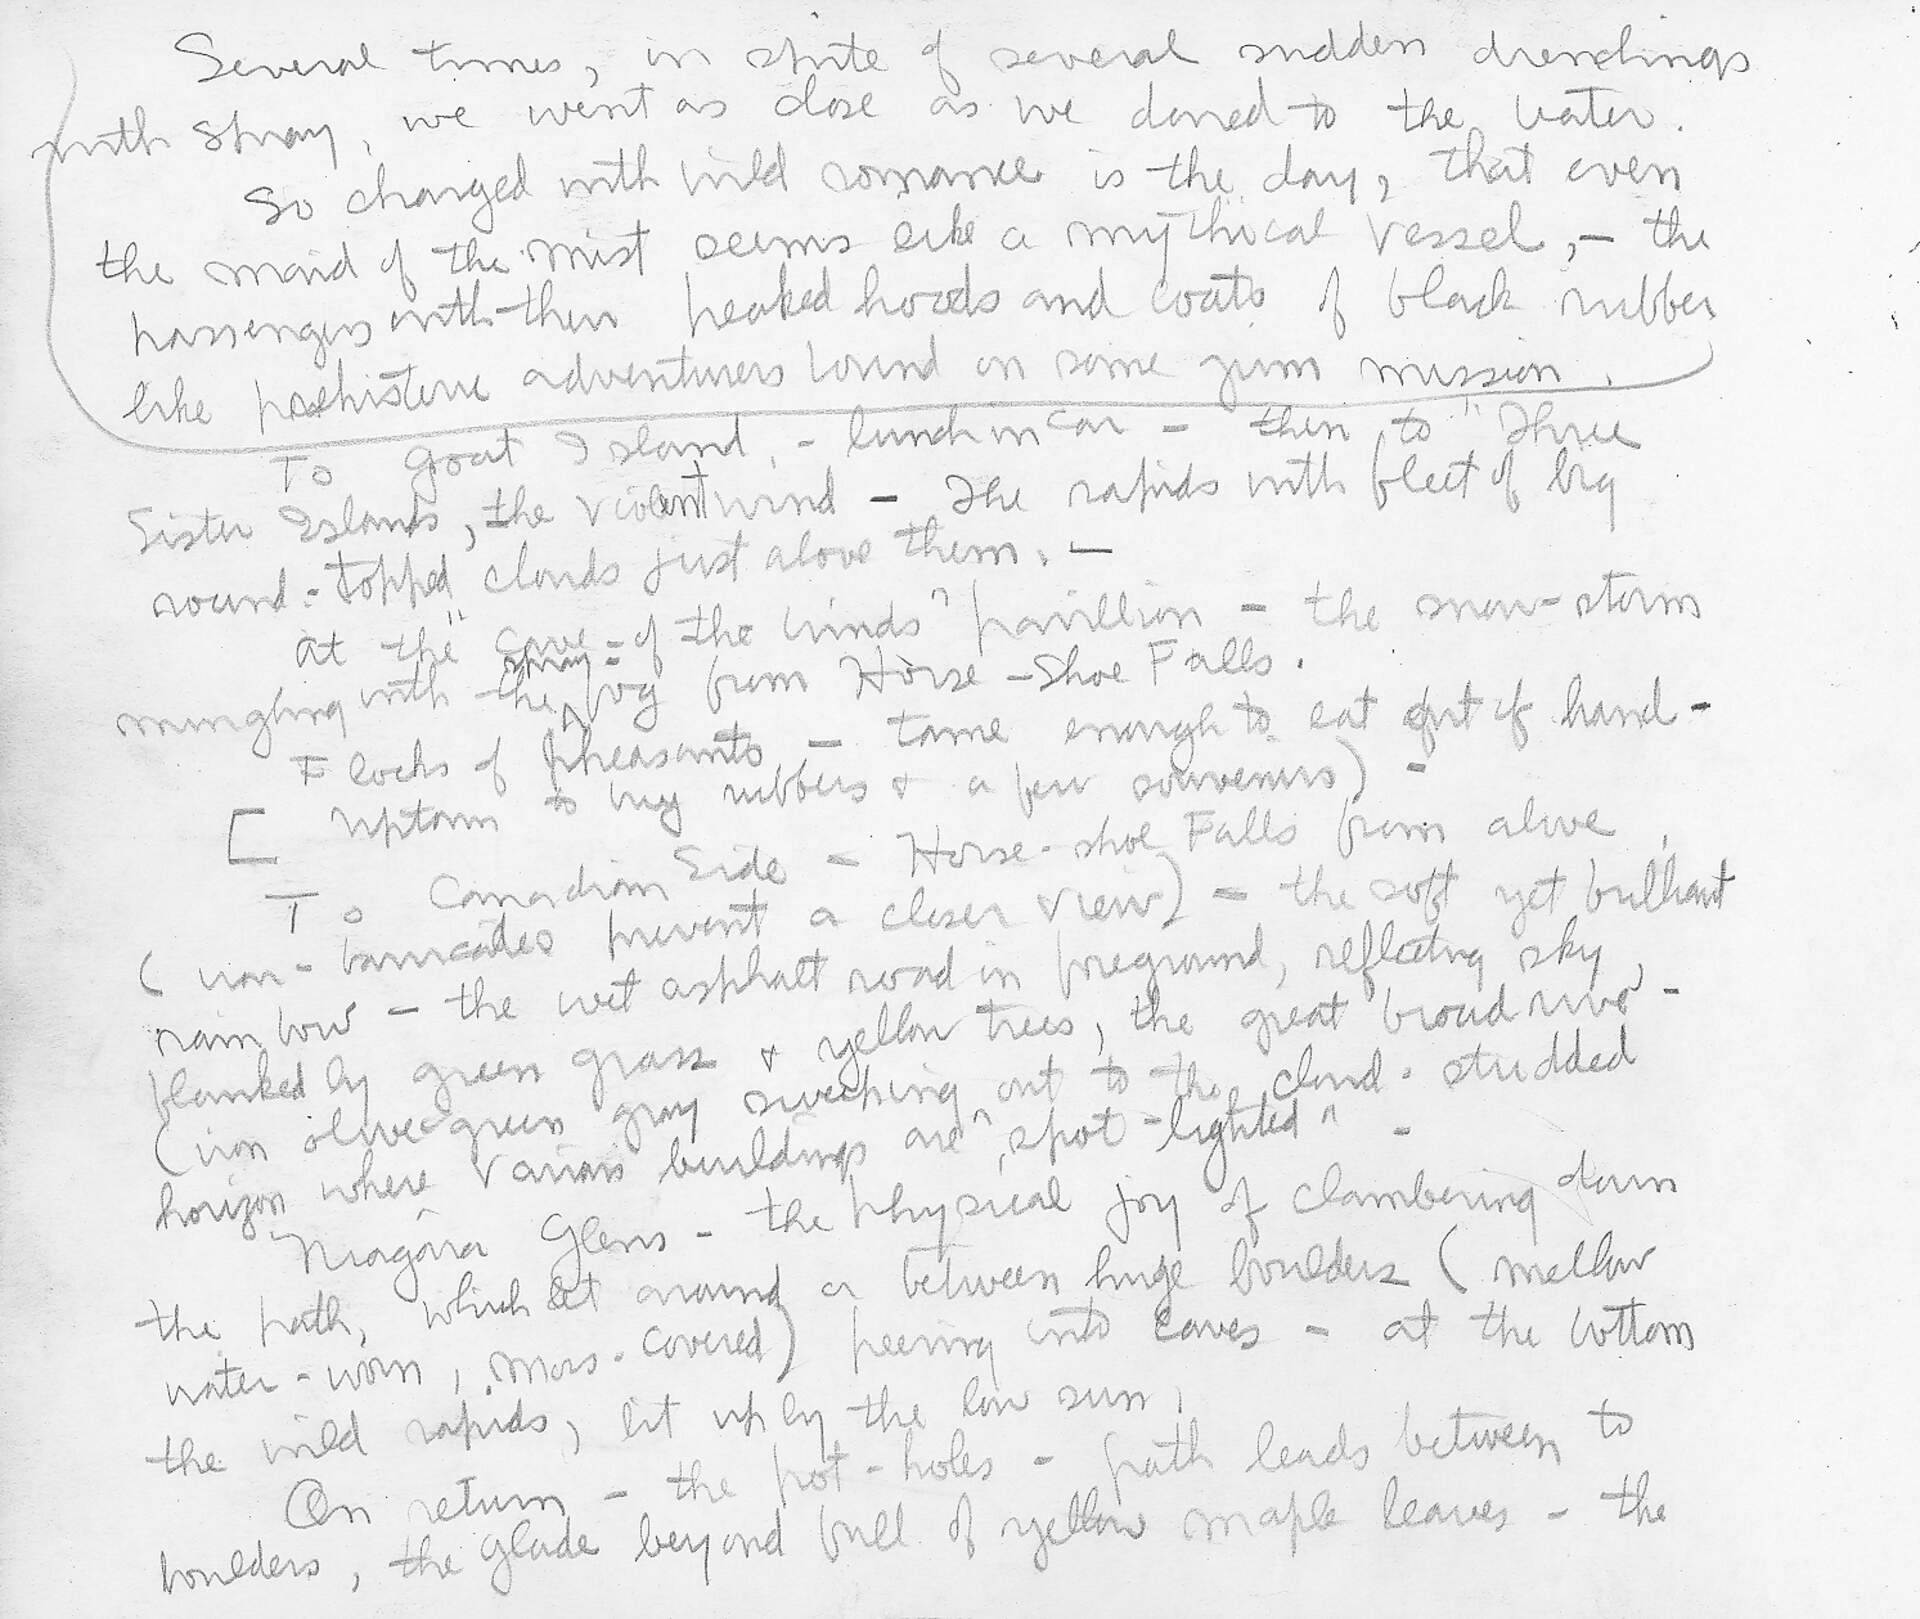 Several times, in spite of several sudden drenchings
with spray, we went as close as we dared to the water.
So charged with wild romance is the day, that even
the maid of the mist seems like a mythical vessel, – the
passengers with their peaked hoods and coats of black rubber
like prehistoric adventurers bound on some grim mission.
To Goat Island, – lunch in car – then to "Three
Sister Islands, the violent wind – The rapids with fleet of big
round-topped clouds just above them. –
At the "Cave-of the Winds" pavillion – the snow-storm
mingling with the spray-fog from Horse-Shoe Falls.
Flocks of pheasants – tame enough to eat out of hand –
[ Uptown to buy rubbers & a few souvenirs) –
To Canadian Side – Horse-shoe Falls from above,
(iron-barricades prevent a closer view) – the soft yet brilliant
rainbow – the wet asphalt road in foreground, reflecting sky,
flanked by green grass & yellow trees, the great broad river –
(iron olive-green gray sweeping out to the cloud-studded
horizon where various buildings are "spot-lighted" –
Niagara Glens – the physical joy of clambering down
the path, which around a between huge boulders (mellow
water-worn, moss-covered) peering into caves – at the bottom
the wild rapids, lit up by the low sun,
On return – the pot-holes – path leads between to
boulders, the glade beyond full of yellow maple leaves – the